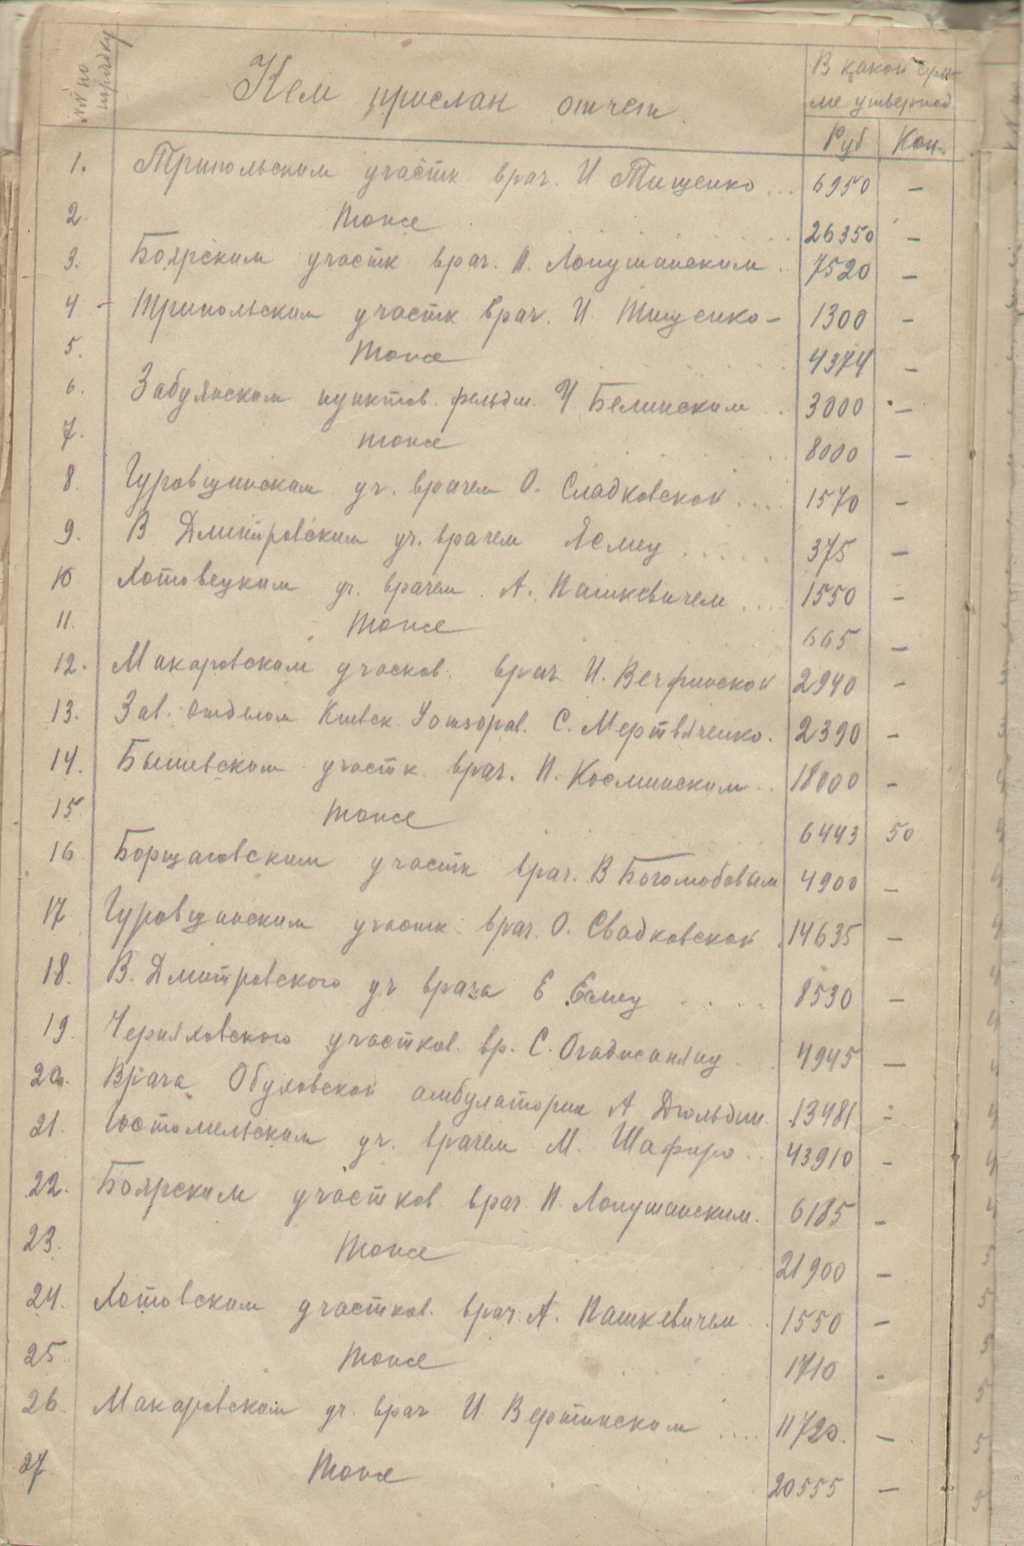 №№ по порядку
Кем прислан отчет.
В какой сум-
ме утвержд
Руб Коп.
1. Трипольским участк. врач. И Тищенко... 6950 —
2. Тоже 26350 —
3. Боярским участк врач. П. Лопушанским. 7520 —
4 - Трипольским участк врач. И Тищенко- 1300 —
5. Тоже 4374 —
6. пунктов. фельдш. Белинским.. 3000 —
7. тоже 8000 —
8. Гуровщинским уч. врачем О. Сладковской.... 1570 —
9. В Дмитровским уч. врачем Ясмец..... 375 —
10 Хотовецким уч. врачем. А. Пашкевичем.... 1550 —
11. Тоже 665 —
12. Макаровским участков. врач И. 2940 —
13. Зав. отделом Киевск. С. Мертвяченко. 2390 —
14. Бышевским участк. врач. П. Косминским.. 18000 —
15 Тоже 6443 50
16 Борщаговским участк врач. В Боголюбовым 4900 —
17 Гуровщинским участк. врач. О. Свадковской. 14635 —
18. В. Дмитровского уч врача Е Есмец.... 8530 —
19. Черняховского участков. вр. С. 4945 —
20. Врача Обуховской амбулатории А 13481 -
21. Гостомельским уч. врачем М. Шафиро.. 43910 —
22. Боярским участков. врач П. Лопушанским. 6185 —
23. Тоже 21900 —
24. Хотовским участков. врач. А. Пашкевичем.. 1550 —
25 Тоже 1710 -
26. Макаровским уч. врач И. Вертинским.... 11720. —
27 Тоже 20555 —